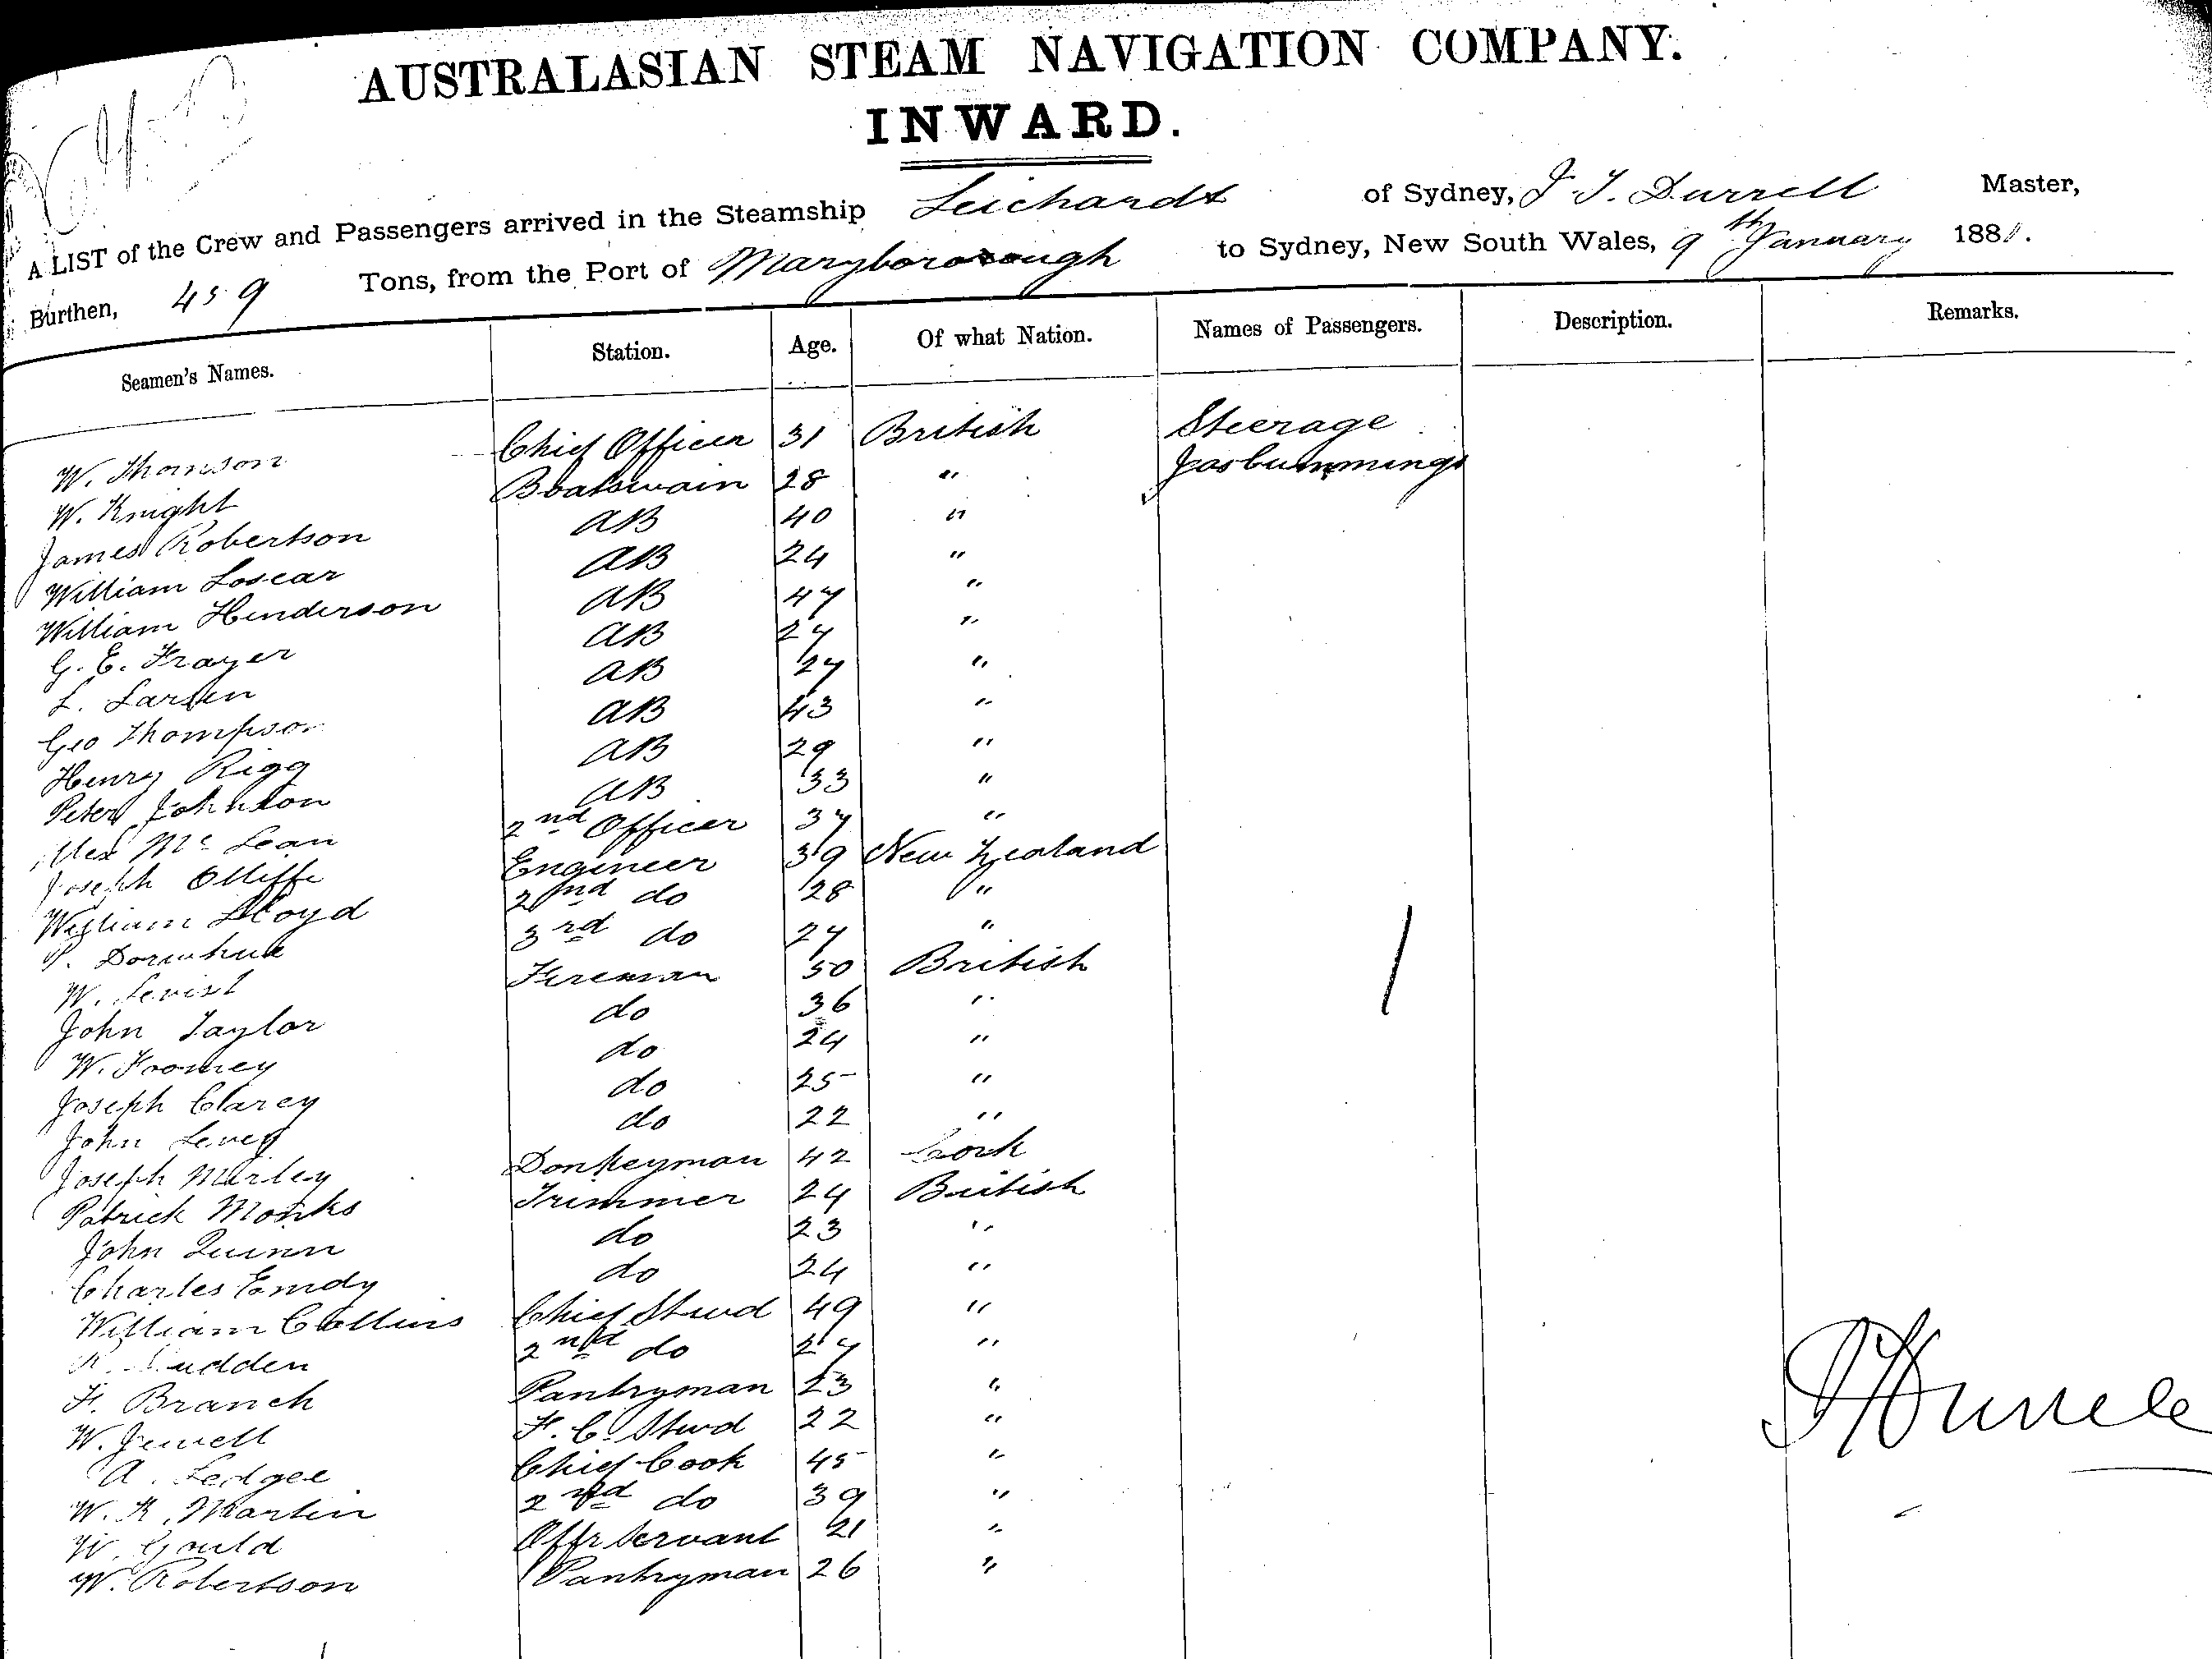 AUSTRALASIAN STEAM NAVIGATION COMPANY.
INWARD.
A LIST of the Crew and Passengers arrived in the Steamship Leichardt of Sydney, J T. Durrell Master,
Burthen, 459 Tons, from the Port of Maryborough to Sydney, New South Wales, 9th January 1881.
Seamen's Names. Station. Age. Of what Nation. Names of Passengers. Description. Remarks.
W. Thomson Chief Officer 31 British Steerage
W. Knight Boatswain 28 " Jas Cummings
James Robertson AB 40 "
William Loscar AB 24 "
William Henderson AB 47 "
G. E. Frayer AB 27 "
L. Larsen AB 27 "
Geo Thompson AB 43 "
Henry Rigg AB 29 "
Peter Johnston AB 33 "
Alex Mc Lean 2nd Officer 37 "
Joseph Olliffe Engineer 39 New Zealand
William Lloyd 2nd do 28 "
3rd do 27 "
W. Fireman 50 British
John Taylor do 36 "
W. do 24 "
Joseph Clarey do 25 "
John Levey do 22 "
Joseph Marley Donkeyman 42 Cork
Patrick Monks Trimmer 24 British
John Quinn do 23 "
Charles Emdy do 24 "
William Collins Chief Stwd 49 "
2nd do 27 "
F. Branch Pantryman 23 "
W. Jewell F. C. Stwd 22 "
A. Ledgee Chief Cook 45 "
W. K. Martin 2nd do 39 "
W. Gould Offr Servant 21 "
W. Robertson Pantryman 26 "